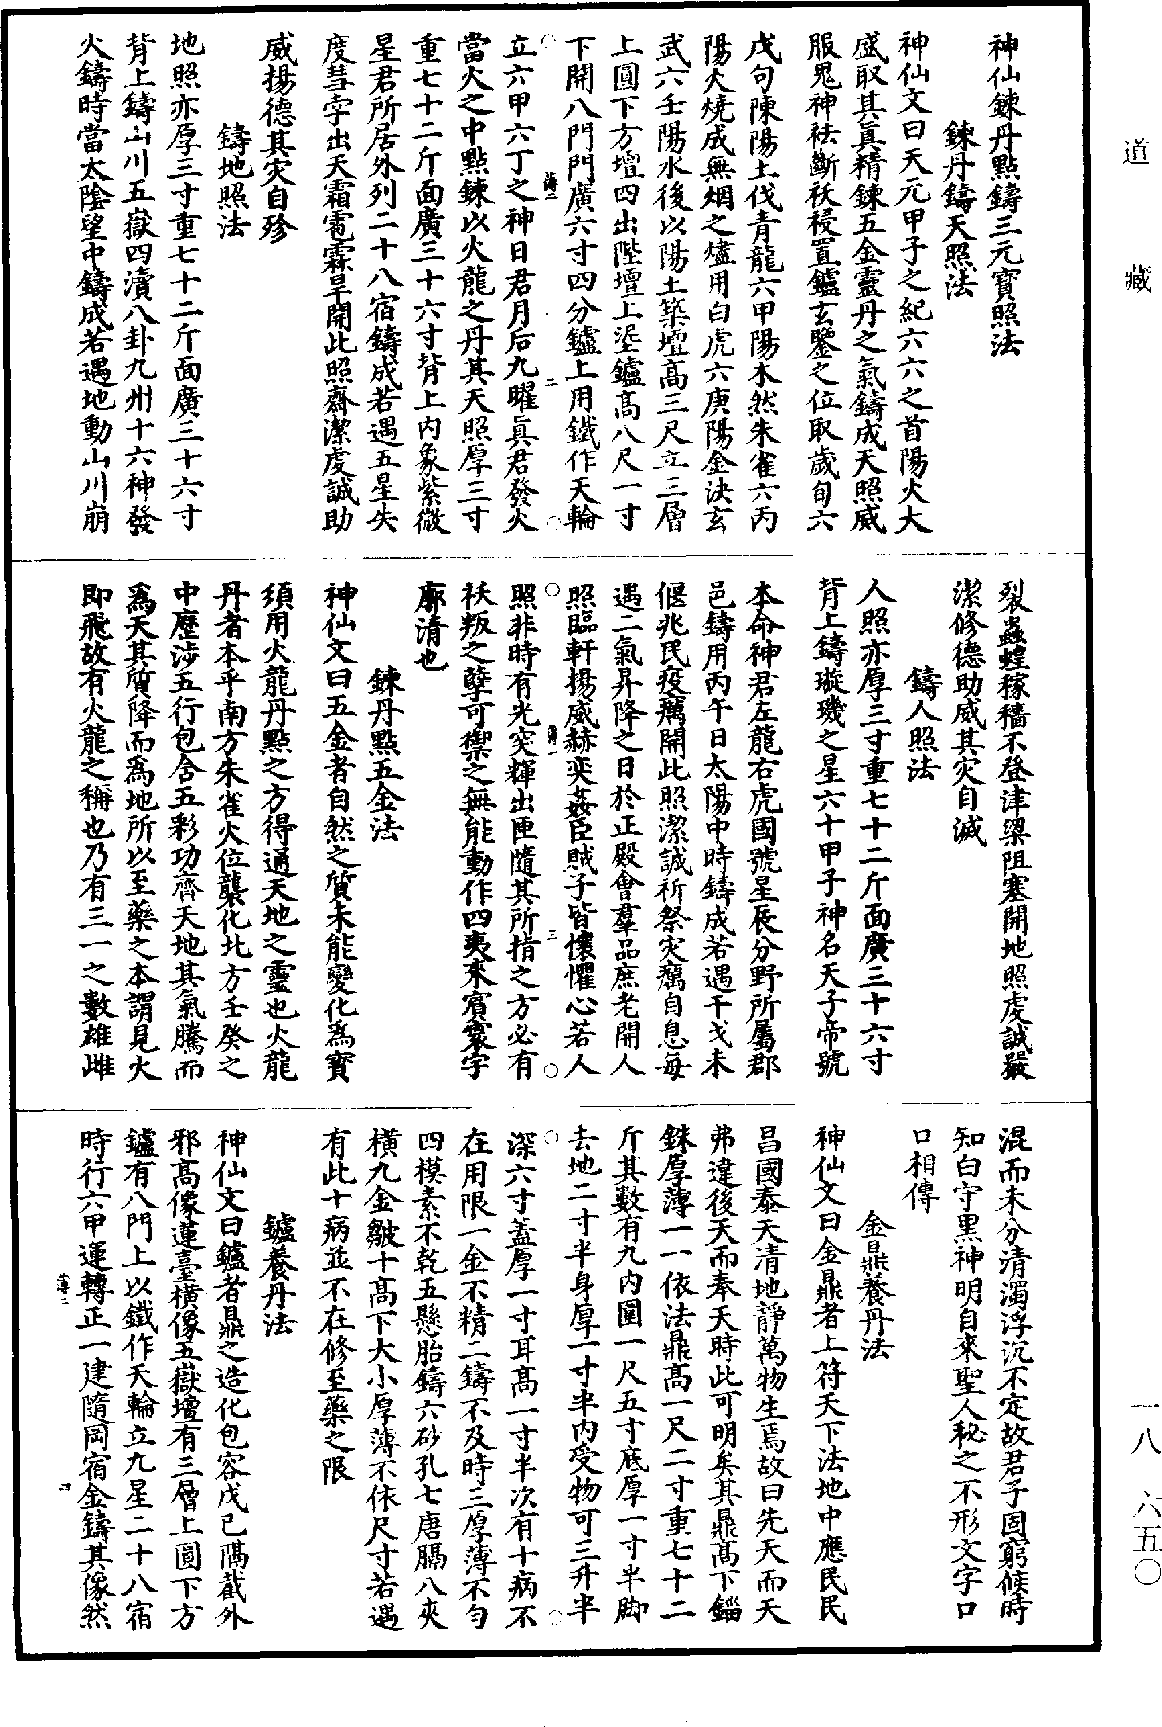 道藏
一八 六五〇
神仙鍊丹點鑄三元寶照法
鍊丹鑄天照法
神仙文曰天元甲子之紀六六之首陽火大
盛取其眞精鍊五金靈丹之氣鑄成天照威
服鬼神袪斷袄祲置鑪玄鑒之位取歲旬六
戊句陳陽土伐青龍六甲陽木然朱雀六丙
陽火燒成無烟之燼用白虎六庚陽金決玄
武六壬陽水後以陽土築壇高三尺立三層
上圓下方壇四出陛壇上埿鑪高八尺一寸
下開八門門廣六寸四分鑪上用鐵作天輪
立六甲六丁之神日君月后九曜眞君發火
當火之中點鍊以火龍之丹其天照厚三寸
重七十二斤面廣三十六寸背上內象紫微
星君所居外列二十八宿鑄成若遇五星失
度彗孛出天霜雹霖旱開此照齋潔虔誠助
威揚德其灾自殄
鑄地照法
地照亦厚三寸重七十二斤面廣三十六寸
背上鑄山川五嶽四瀆八卦九州十六神發
火鑄時當太陰望中鑄成若遇地動山川崩
裂蟲蝗稼穡不登津梁阻塞開地照虔誠嚴
潔修德助威其灾自滅
鑄人照法
人照亦厚三寸重七十二斤面廣三十六寸
背上鑄璇璣之星六十甲子神名天子帝號
本命神君左龍右虎國號星辰分野所屬郡
邑鑄用丙午日太陽中時鑄成若遇干戈未
偃兆民疫癘開此照潔誠祈祭灾癘自息每
遇二氣昇降之日於正殿會羣品庶老開人
照臨軒揚威赫奕姦臣賊子皆懷懼心若人
照非時有光突輝出匣隨其所指之方必有
袄叛之孽可禦之無能動作四夷來賓寰宇
廓清也
鍊丹點五金法
神仙文曰五金者自然之質未能變化爲寶
須用火龍丹點之方得通天地之靈也火龍
丹者本乎南方朱雀火位襲化北方壬癸之
中歷涉五行包含五彩功齊天地其氣騰而
爲天其質降而爲地所以至藥之本謂見火
即飛故有火龍之稱也乃有三一之數雄雌
混而未分清濁浮沉不定故君子固窮候時
知白守黑神明自來聖人秘之不形文字口
口相傳
金鼎養丹法
神仙文曰金鼎者上符天下法地中應民民
昌國泰天清地靜萬物生焉故曰先天而天
弗違後天而奉天時此可明矣其鼎高下錙
銖厚薄一一依法鼎高一尺二寸重七十二
斤其數有九內圍一尺五寸底厚一寸半脚
去地二寸半身厚一寸半內受物可三升半
深六寸蓋厚一寸耳高一寸半次有十病不
在用限一金不精二鑄不及時三厚薄不勻
四模素不乾五懸胎鑄六砂孔七唐膈八夾
橫九金皺十高下大小厚薄不依尺寸若遇
有此十病並不在修至藥之限
鑪養丹法
神仙文曰鑪者鼎之造化包容戊己隔截外
邪高像蓮臺橫像五嶽壇有三層上圓下方
鑪有八門上以鐵作天輪立九星二十八宿
時行六甲運轉正一建隨罡宿金鑄其像然